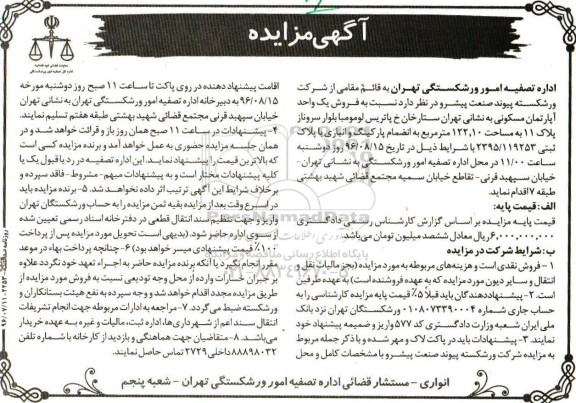 آگهی مزایده
اداره تصفیه امور ورشکستگی تهران به قائم مقامی از شرکت
ورشکسته پیوند صنعت پیشرو در نظر دارد نسبت به فروش یک واحد
آپارتمان مسکونی به نشانی تهران ستارخان خ پاتریس لومومبا بلوار سروناز
پلاک ۱۱ به مساحت ۱۲۲,۱۰ مترمربع به انضمام پارکینگ و انباری با پلاک
ثبتی ۲۳۹۵/۱۱۹۲۵۳ با شرایط ذیل در تاریخ ۹۶/۰۸/۱۵ روز دوشنبه
ساعت ۱۱/۰۰ در محل اداره تصفیه امور ورشکستگی به نشانی تهران -
خیابان سپهبد قرنی - تقاطع خیابان سمیه مجتمع قضائی شهید بهشتی
طبقه ۷ اقدام نماید.
الف: قیمت پایه:
قیمت پایه مزایده بر اساس گزارش کارشناس رسمی دادگستری
۶,۰۰۰,۰۰۰,۰۰۰ ریال معادل ششصد میلیون تومان می‌باشد.
ب: شرایط شرکت در مزایده
۱ - فروش نقدی است و هزینه‌های مربوطه به مورد مزایده (بجز مالیات نقل و
انتقال و سایر دیون مورد مزایده که به عهده فروشنده است) به عهده طرفین
است. ۲ - پیشنهاددهندگان باید قبلا ۵٪ قیمت پایه مزایده کارشناسی را به
حساب جاری شماره ۰۱۰۸۰۷۳۳۹۰۰۰۴ ورشکستگان تهران نزد بانک
ملی ایران شعبه وزارت دادگستری کد ۵۷۷ واریز و ضمیمه پیشنهاد خود
نمایند. ۳ - پیشنهادات باید در پاکت لاک و مهر شده و با ذکر جمله مربوط
به مزایده شرکت ورشکسته پیوند صنعت پیشرو با مشخصات کامل و محل
اقامت پیشنهاد دهنده در روی پاکت تا ساعت ۱۱ صبح روز دوشنبه مورخه
۹۶/۰۸/۱۵ به دبیرخانه اداره تصفیه امور ورشکستگی تهران به نشانی تهران
خیابان سپهبد قرنی مجتمع قضائی شهید بهشتی طبقه هفتم تسلیم نمایند.
۴ - پیشنهادات در ساعت ۱۱ صبح همان روز باز و قرائت خواهد شد و در
همان جلسه مزایده حضوری به عمل خواهد آمد و برنده مزایده کسی است
که بالاترین قیمت را پیشنهاد نماید. این اداره تصفیه در رد یا قبول یک یا
کلیه پیشنهادات مختار است و به پیشنهادات مبهم - مشروط - فاقد سپرده و
بر خلاف شرایط این آگهی ترتیب اثر داده نخواهد شد. ۵ - برنده مزایده باید
در اسرع وقت بعد از مزایده بقیه ثمن مزایده را به حساب ورشکستگان تهران
واریز و جهت تنظیم سند انتقال قطعی در دفترخانه اسناد رسمی تعیین شده
از سوی اداره حاضر شود. (بدیهی است تحویل مورد مزایده پس از پرداخت
۱۰۰٪ قیمت پیشنهادی میسر خواهد بود) ۶ - چنانچه پرداخت بهاء در موعد
مقرر انجام نگیرد یا آنکه برنده مزایده حاضر به اجراء تعهد خود نگردد علاوه
بر جبران خسارات وارده از محل وجه تودیعی نسبت به فروش مورد مزایده از
طریق مزایده مجدد اقدام خواهد شد و وجه سپرده به نفع هیئت بستانکاران و
ورشکسته ضبط می‌گردد. ۷ - مراجعه به ادارات مربوطه جهت انجام تشریفات
انتقال سند اعم از شهرداری‌ها، اداره ثبت، مالیات و غیره به عهده خریدار
می‌باشد. ۸ - متقاضیان جهت هماهنگی و بازدید از کارخانه با شماره تلفن
۸۸۸۹۸۰۳۲ داخلی ۲۷۲۹ تماس حاصل نمایند.
انواری - مستشار قضائی اداره تصفیه امور ورشکستگی تهران - شعبه پنجم